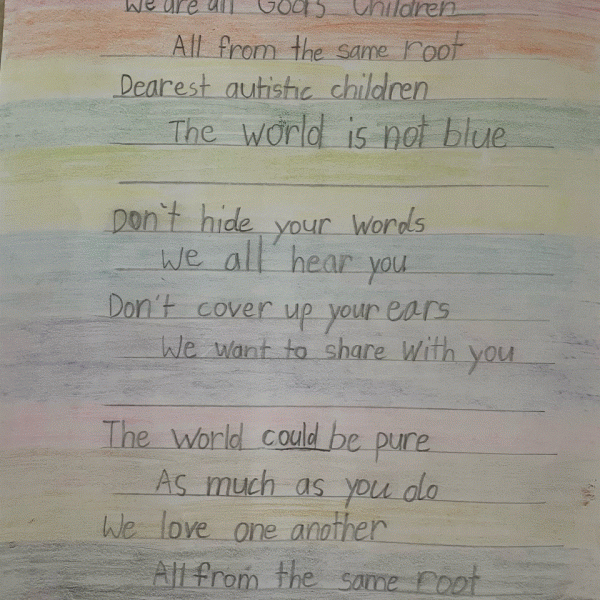 We are all God's Children
All from the same root
Dearest autistic children
The world is not blue
Don't hide your words
We all hear you
Don't cover up your ears
We want to share with you
The world could be pure
As much as you do
We love one another
All from the same root